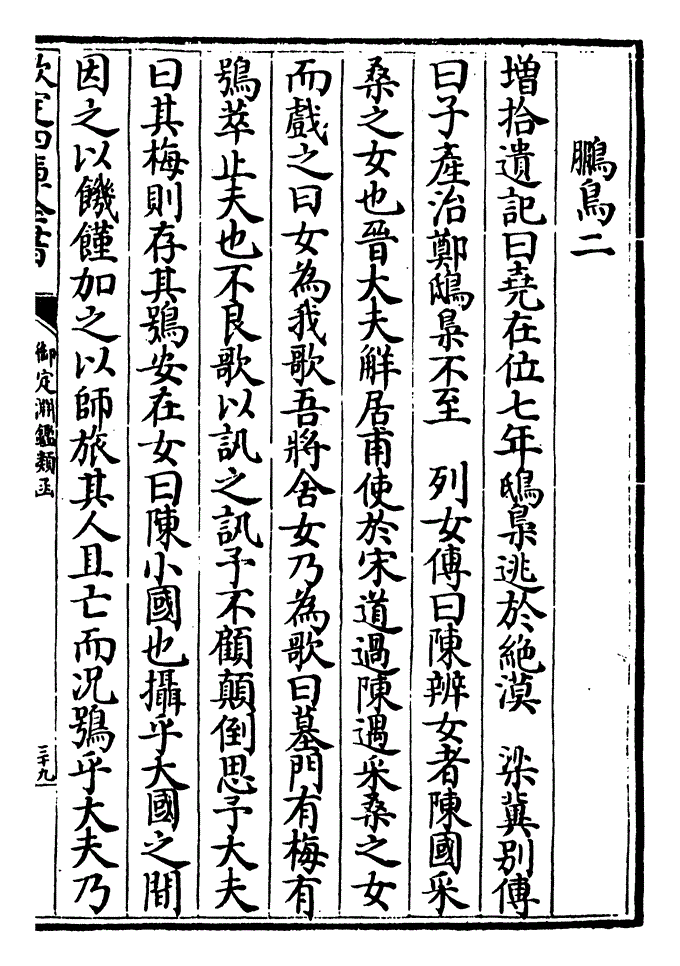 鵩鳥二
增拾遺記曰堯在位七年鴟梟逃於絶漠　梁冀别傳
曰子產治鄭鴟梟不至　列女傳曰陳辨女者陳國采
桑之女也晉大夫解居甫使於宋道過陳遇采桑之女
而戲之曰女為我歌吾將舍女乃為歌曰墓門有梅有
鴞萃止夫也不良歌以訊之訊予不顧顛倒思予大夫
曰其梅則存其鴞安在女曰陳小國也攝乎大國之間
因之以饑饉加之以師旅其人且亡而况鴞乎大夫乃
欽定四庫全書
御定淵鑑類函
三十九